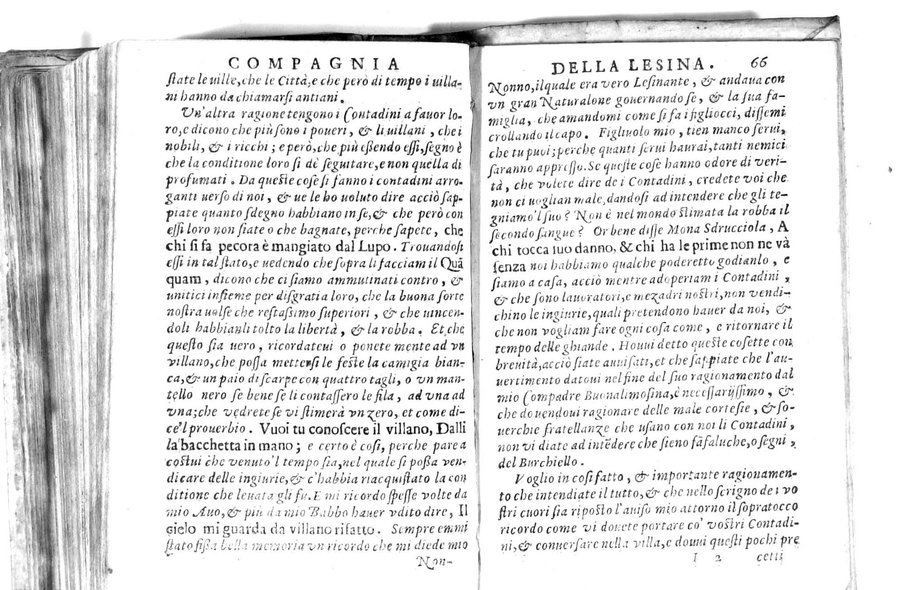 COMPAGNIA
ſtate le uille, che le Città, e che però di tempo i uilla-
ni hanno da chiamarſi antiani.
Vn'altra ragione tengono i Contadini a fauor lo-
ro, e dicono che più ſono i poueri, & li uillani, che i
nobili, & i ricchi; e però, che più eßendo eßi, ſegno è
che la conditione loro ſi dè ſeguitare, e non quella di
profumati. Da queſte coſe ſi fanno i contadini arro-
ganti uerſo di noi, & ue le ho uoluto dire acciò ſap-
piate quanto ſdegno habbiano in ſe, & che però con
eßi loro non ſiate o che bagnate, perche ſapete, che
chi ſi fa pecora è mangiato dal Lupo. Trouandoſi
eßi in tal ſtato, e uedendo che ſopra li facciam il Quā
quam, dicono che ci ſiamo ammutinati contro, &
unitici inſieme per diſgratia loro, che la buona ſorte
noſtra uolſe che reſtaßimo ſuperiori, & che uincen-
doli habbianli tolto la libertà, & la robba. Et che
queſto ſia uero, ricordateui o ponete mente ad vn
villano, che poſſa metterſi le feſte la camigia bian-
ca, & un paio di ſcarpe con quattro tagli, o vn man-
tello nero ſe bene ſe li contaſſero le fila, ad vna ad
vna; che vedrete ſe vi ſtimerà vn zero, et come di-
ce'l prouerbio. Vuoi tu conoſcere il villano, Dalli
la bacchetta in mano; e certo è coſi, perche pare a
coſtui che venuto'l tempo ſia, nel quale ſi poßa ven-
dicare delle ingiurie, & c'habbia riacquiſtato la con
ditione che leuata gli fu. E mi ricordo ſpeſſe volte da
mio Auo, & più da mio Babbo hauer vdito dire, Il
cielo mi guarda da villano rifatto. Sempre emmi
ſtato fiſſa bella memoria vn ricordo che mi diede mio
Non-
DELLA LESINA. 66
Nonno, il quale era vero Leſinante, & andaua con
vn gran Naturalone gouernando ſe, & la ſua fa-
miglia, che amandomi come ſi fa i figliocci, diſſemi
crollando il capo. Figliuolo mio, tien manco ſerui,
che tu puoi; perche quanti ſerui haurai, tanti nemici
ſaranno appreſſo. Se queſte coſe hanno odore di veri-
tà, che volete dire de i Contadini, credete voi che
non ci uoglian male, dandoſi ad intendere che gli te-
gniamo'l ſuo? Non è nel mondo ſtimata la robba il
ſecondo ſangue? Or bene diſſe Mona Sdrucciola, A
chi tocca ſuo danno, & chi ha le prime non ne và
ſenza noi habbiamo qualche poderetto godianlo, e
ſiamo a caſa, acciò mentre adoperiam i Contadini,
& che ſono lauoratori, e mezadri noſtri, non vendi-
chino le ingiurie, quali pretendono hauer da noi, &
che non vogliam fare ogni coſa come, e ritornare il
tempo delle ghiande. Houui detto queſte coſette con
breuità, acciò ſiate auuiſati, et che ſappiate che l'au-
uertimento datoui nel fine del ſuo ragionamento dal
mio Compadre Buonalimoſina, è neceſſarijſſimo, &
che douendoui ragionare delle male corteſie, & ſo-
uerchie fratellanze che uſano con noi li Contadini,
non vi diate ad intēdere che ſieno fāfaluche, o ſegni,
del Burchiello.
Voglio in coſi fatto, & importante ragionamen-
to che intendiate il tutto, & che nello ſcrigno de i vo
ſtri cuori ſia ripoſto l'auiſo mio attorno il ſopratocco
ricordo come vi douete portare co' voſtri Contadi-
ni, & conuerſare nella villa, e douui queſti pochi pre
I 2 cetti